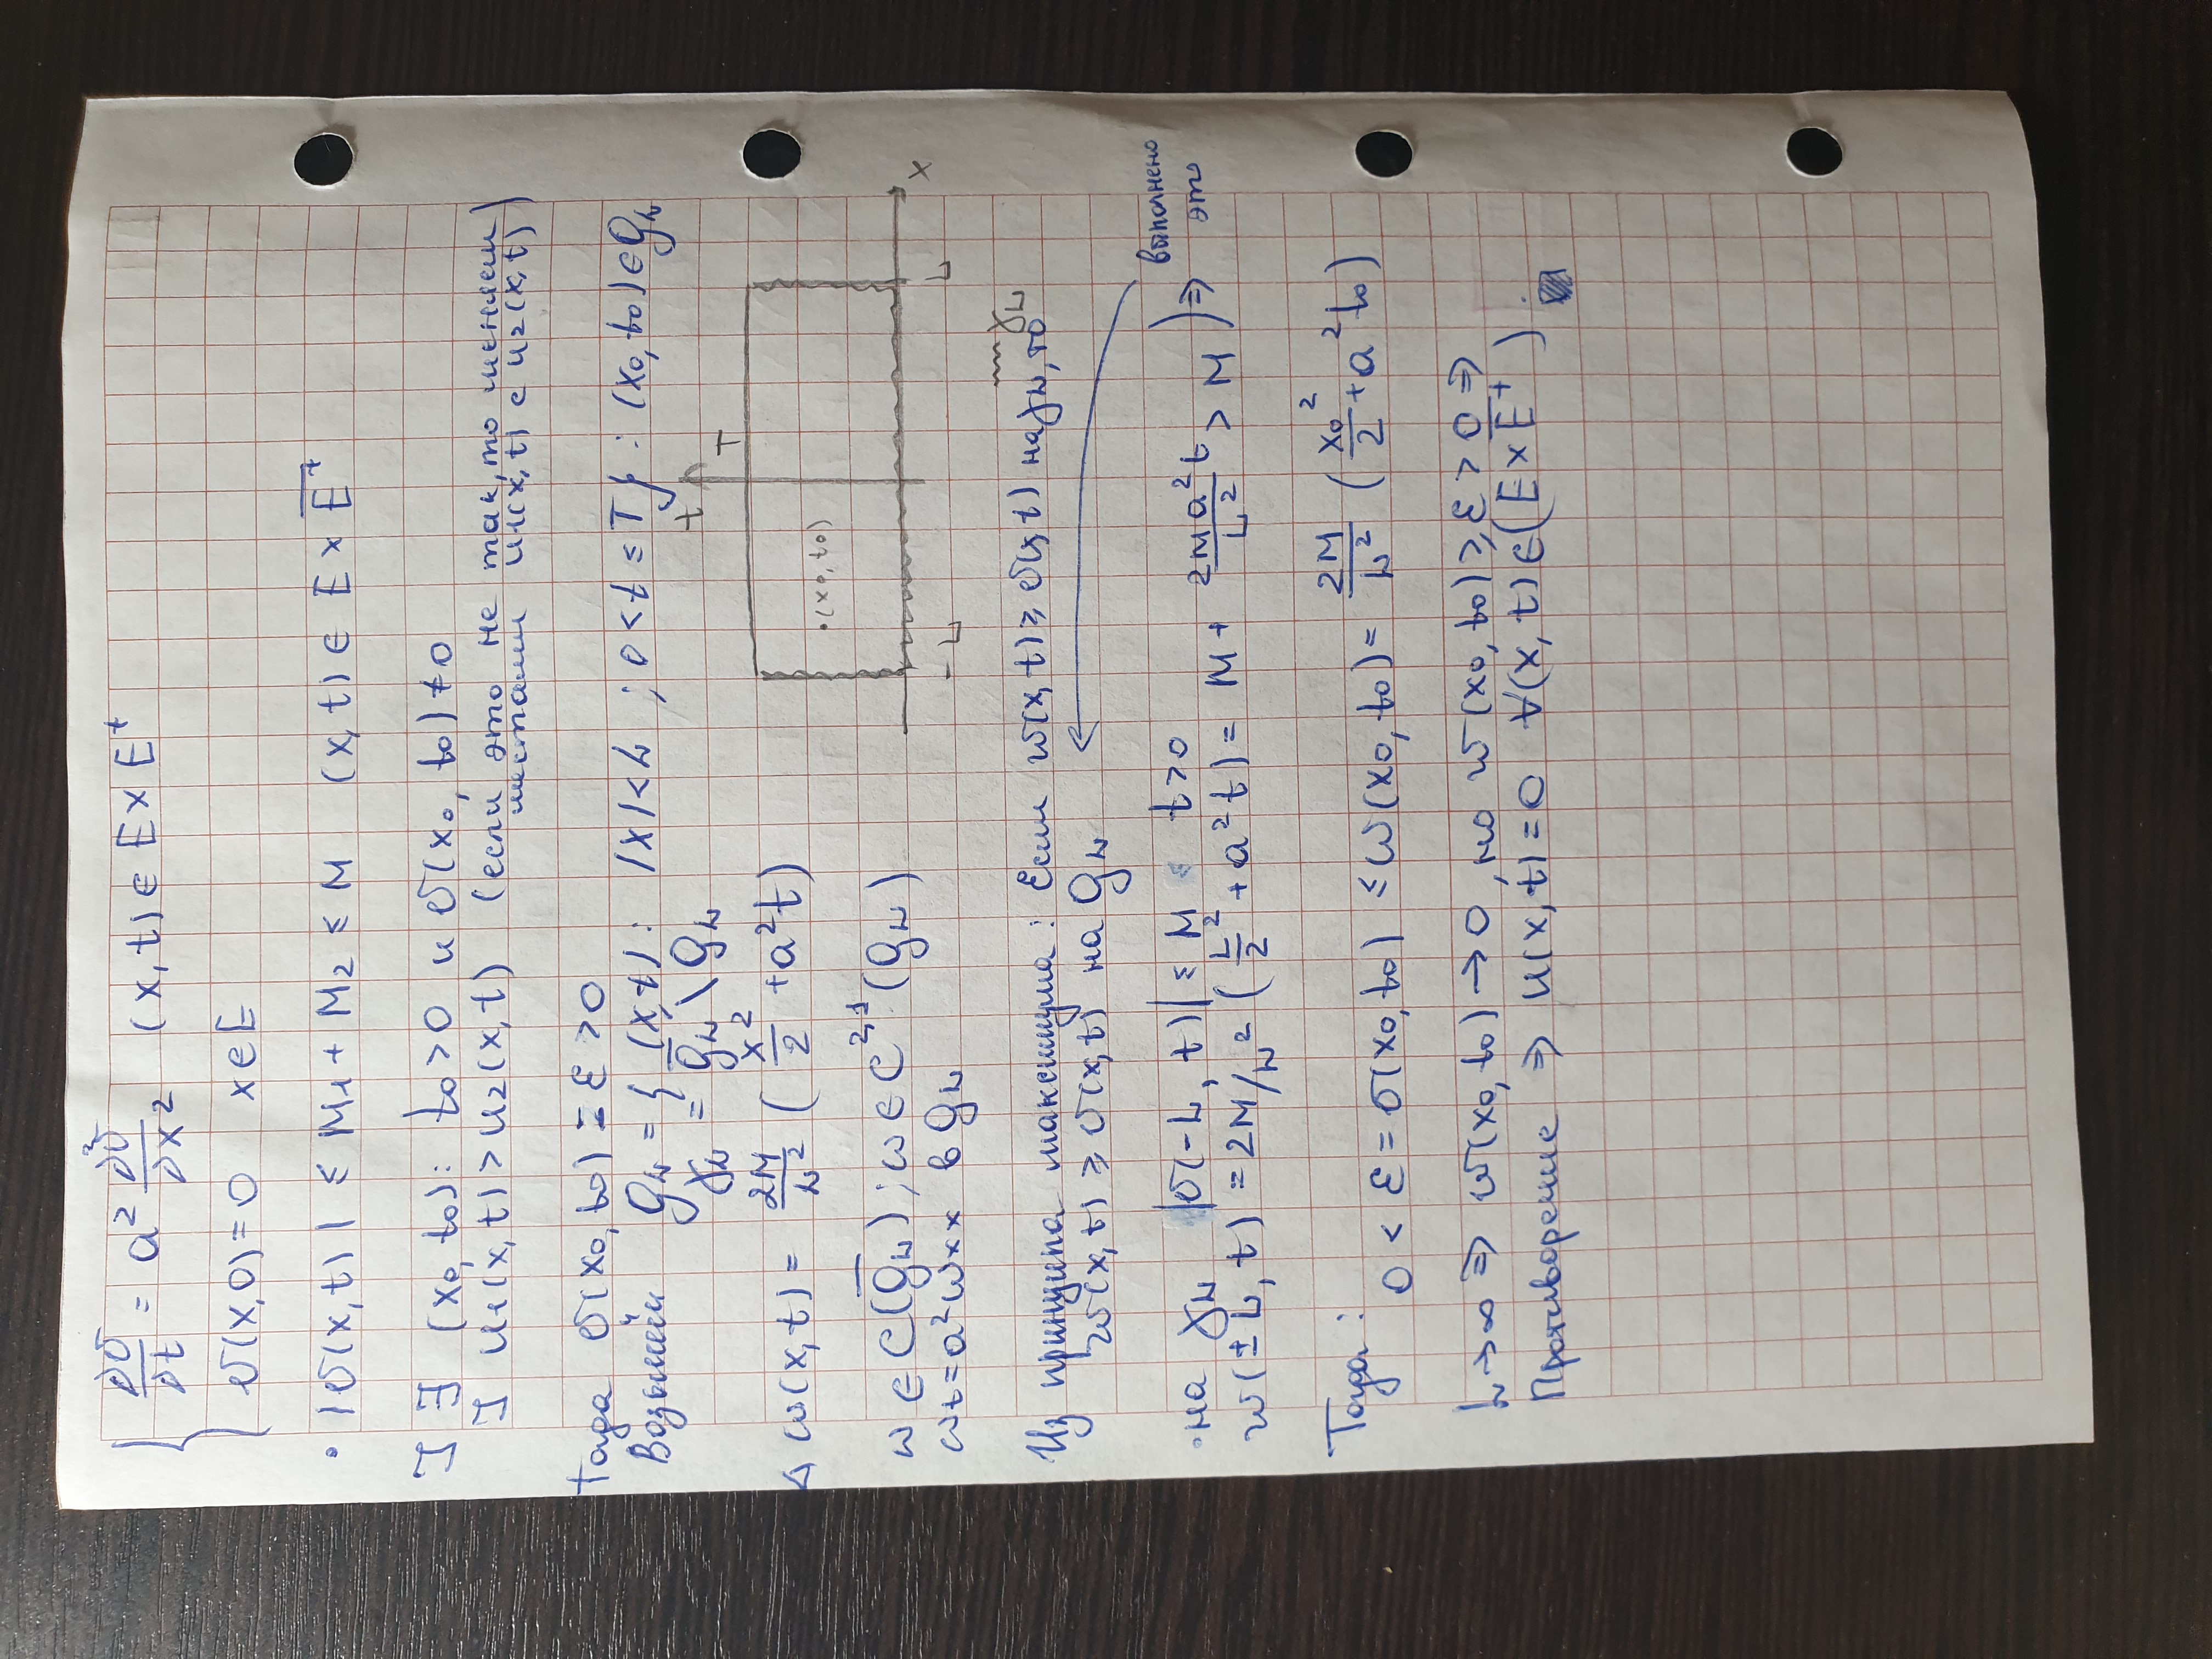 { ∂υ/∂t = a² ∂²υ/∂x² (x,t)∈E×E⁺
υ(x,0)=0 x∈E
• |υ(x,t)| ≤ M₁+M₂ ≤ M (x,t)∈ E×E̅⁺
] ∃ (x₀,t₀): t₀>0 и υ(x₀,t₀)≠0
] u₁(x,t)>u₂(x,t) (если это не так, то меняем
местами u₁(x,t) с u₂(x,t))
Тогда υ(x₀,t₀) = ε >0
Возьмём g_L = {(x,t): |x|<L ; 0<t≤T} : (x₀,t₀)∈g_L
γ_L = g̅_L \ g_L
t T
•(x₀,t₀)
-L L x
Δ w(x,t)= 2M/L² (x²/2 + a²t)
w∈C(g̅_L); w∈C²,¹(g_L)
w_t=a²w_xx в g_L
γ_L
Из принципа максимума: Если w(x,t)≥υ(x,t) на γ_L, то
w(x,t)≥υ(x,t) на g_L
выполнено
это
• на γ_L |υ(-L,t)| ≤ M t>0 ) ⇒
w(±L,t) = 2M/L² (L²/2 + a²t) = M + 2Ma²t/L² > M
Тогда:
0 < ε = υ(x₀,t₀) ≤ w(x₀,t₀) = 2M/L² (x₀²/2 + a²t₀)
L→∞ ⇒ w(x₀,t₀)→0, но w(x₀,t₀)≥ε>0 ⇒
Противоречие ⇒ u(x,t)=0 ∀(x,t)∈(E×E̅⁺).